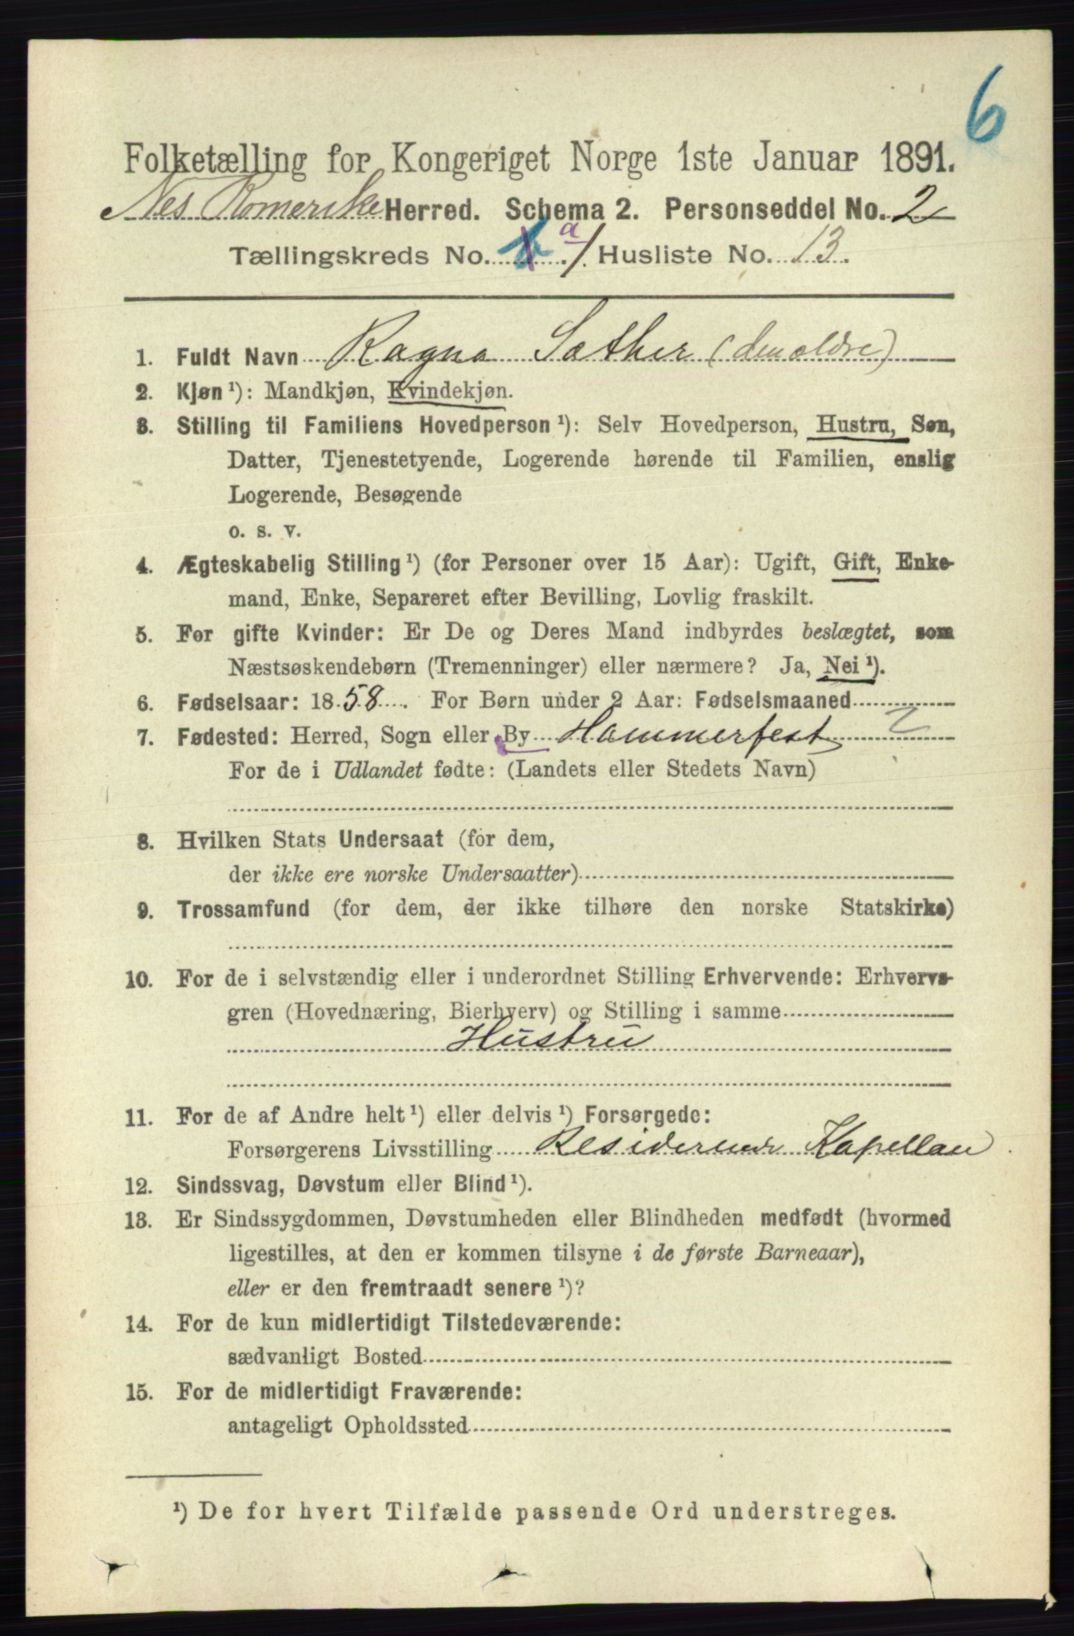 6
Folketælling for Kongeriget Norge 1ste Januar 1891.
Nes Romerike Herred. Schema 2. Personseddel No. 2
Tællingskreds No. a 1. Husliste No. 13.
1. Fuldt Navn Ragna Sæther (den ældre)
2. Kjøn ¹): Mandkjøn, Kvindekjøn.
3. Stilling til Familiens Hovedperson ¹): Selv Hovedperson, Hustru, Søn,
Datter, Tjenestetyende, Logerende hørende til Familien, enslig
Logerende, Besøgende
o. s. v.
4. Ægteskabelig Stilling ¹) (for Personer over 15 Aar): Ugift, Gift, Enke-
mand, Enke, Separeret efter Bevilling, Lovlig fraskilt.
5. For gifte Kvinder: Er De og Deres Mand indbyrdes beslægtet, som
Næstsøskendebørn (Tremenninger) eller nærmere? Ja, Nei ¹).
6. Fødselsaar: 1858. For Børn under 2 Aar: Fødselsmaaned
7. Fødested: Herred, Sogn eller By Hammerfest
For de i Udlandet fødte: (Landets eller Stedets Navn)
8. Hvilken Stats Undersaat (for dem,
der ikke ere norske Undersaatter)
9. Trossamfund (for dem, der ikke tilhøre den norske Statskirke)
10. For de i selvstændig eller i underordnet Stilling Erhvervende: Erhvervs-
gren (Hovednæring, Bierhverv) og Stilling i samme
Hustru
11. For de af Andre helt ¹) eller delvis ¹) Forsørgede:
Forsørgerens Livsstilling Residerende Kapellan
12. Sindssvag, Døvstum eller Blind ¹).
13. Er Sindssygdommen, Døvstumheden eller Blindheden medfødt (hvormed
ligestilles, at den er kommen tilsyne i de første Barneaar),
eller er den fremtraadt senere ¹)?
14. For de kun midlertidigt Tilstedeværende:
sædvanligt Bosted
15. For de midlertidigt Fraværende:
antageligt Opholdssted
¹) De for hvert Tilfælde passende Ord understreges.